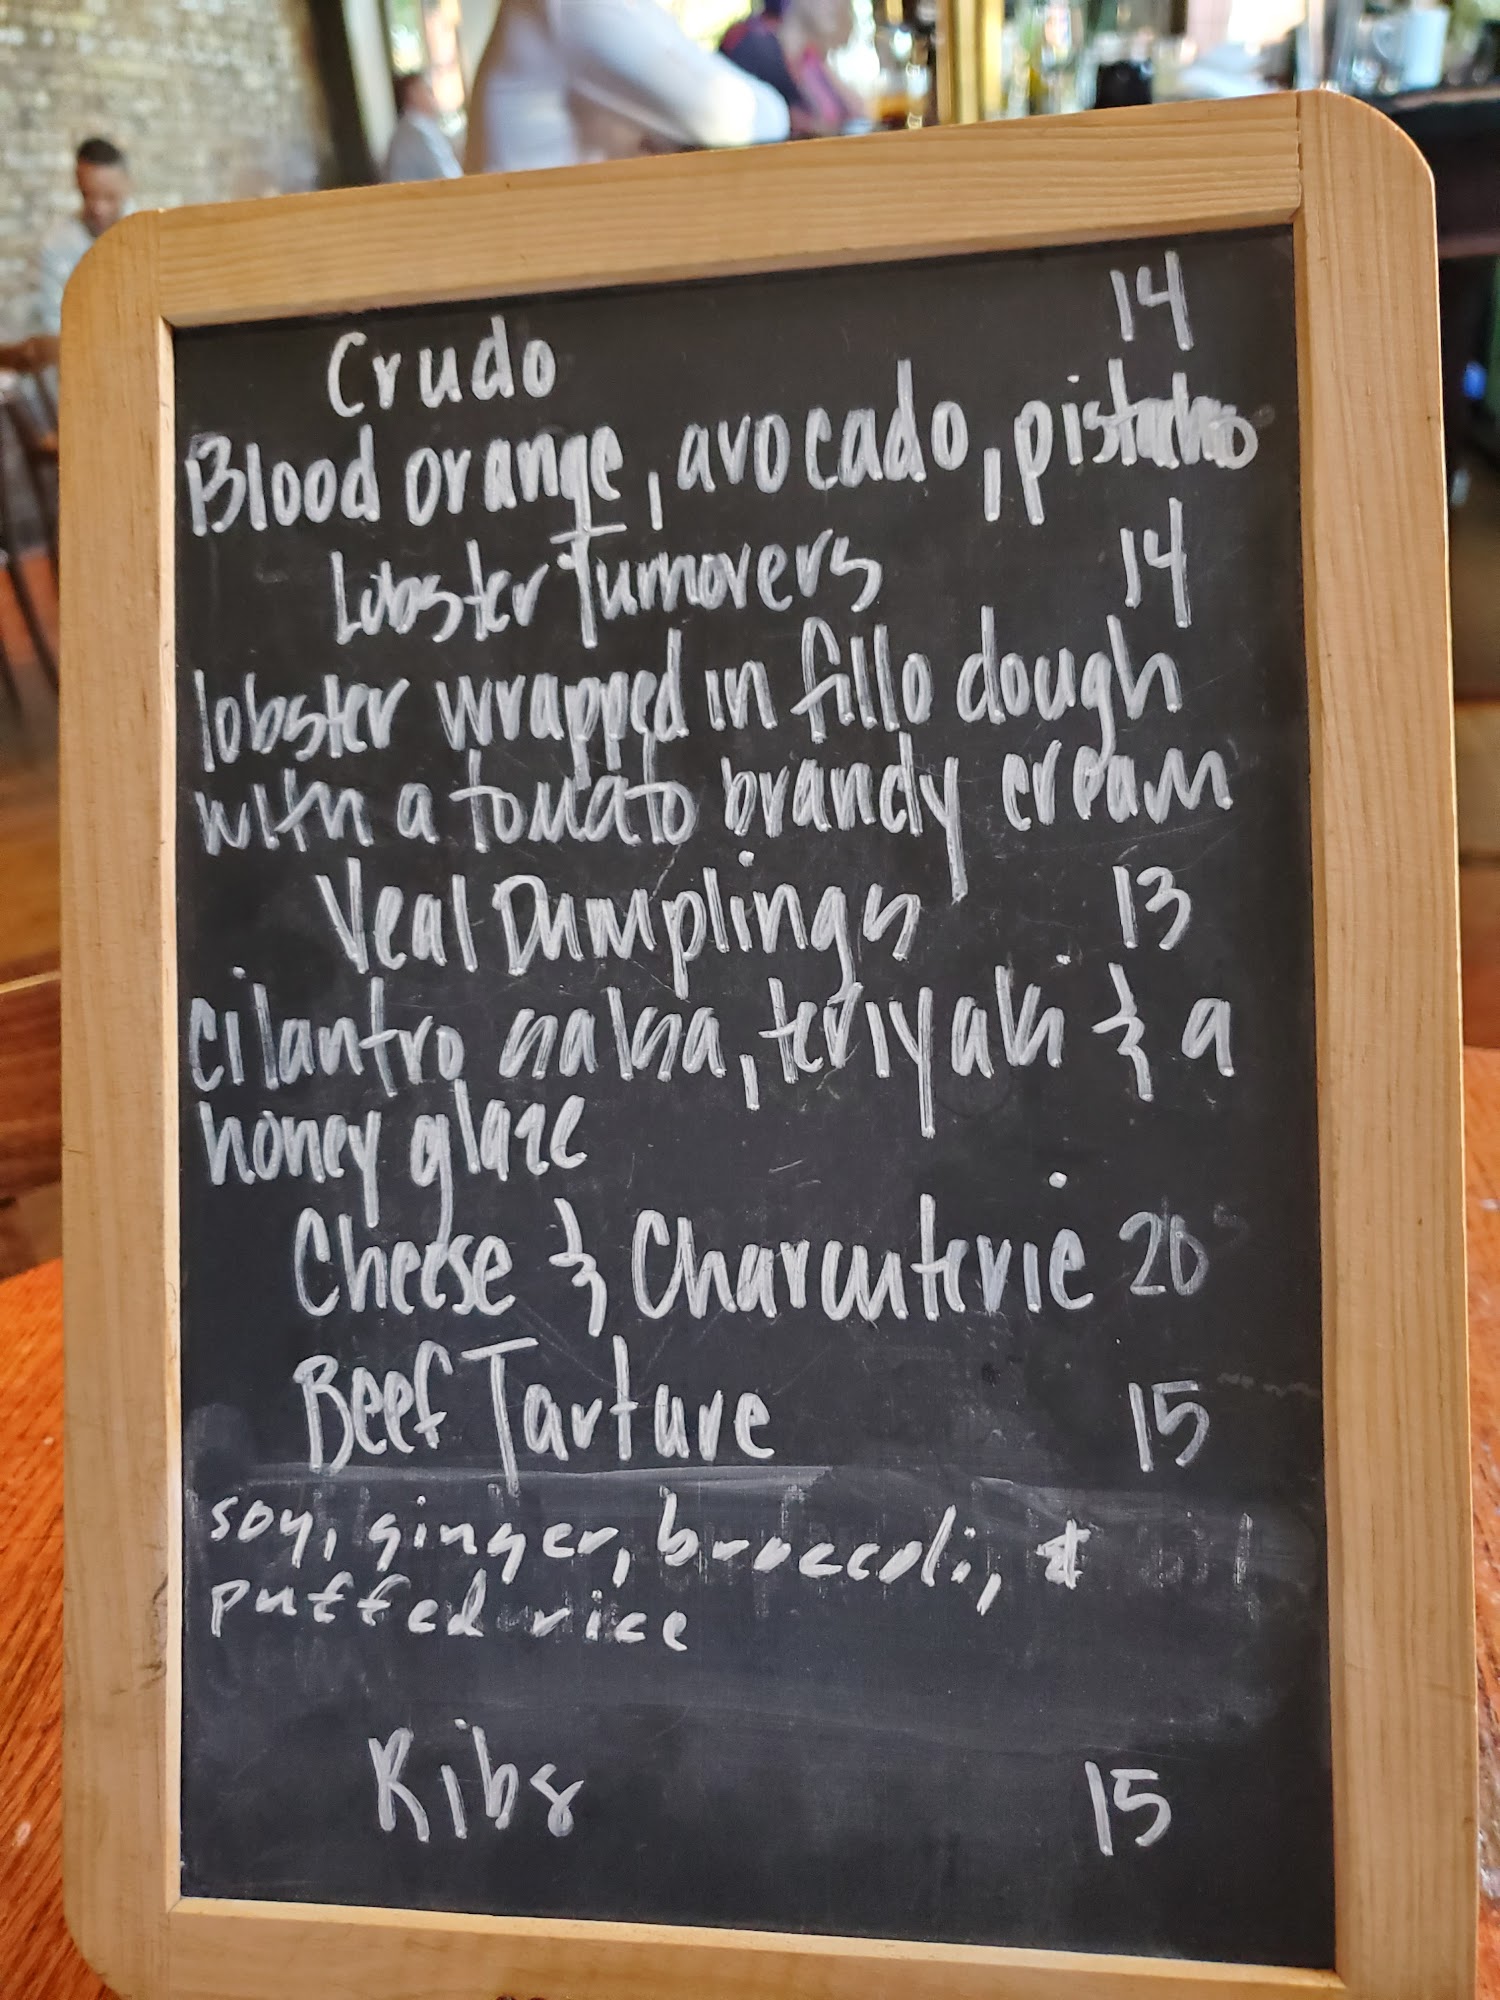 Crudo 14
Blood orange, avocado, pistachio
Lobster Turnovers 14
lobster wrapped in fillo dough
with a tomato brandy cream
Veal Dumplings 13
cilantro salsa, teriyaki & a
honey glaze
Cheese & Charcuterie 20
Beef Tarture 15
soy, ginger, broccoli, &
puffed rice
Ribs 15